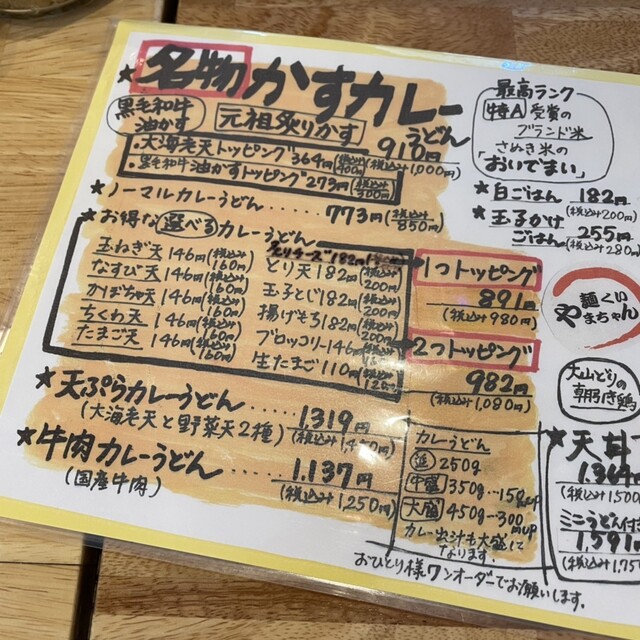 ★名物かすカレーうどん
黒毛和牛油かす
元祖炙りかす
910円
(税込み1,000円)
・大海老天トッピング364円(税込み400円)
・黒毛和牛油かすトッピング273円(税込み300円)
★ノーマルカレーうどん……773円(税込み850円)
★お得な選べるカレーうどん
玉ねぎ天146円(税込み160円)
なすび天146円(税込み160円)
かぼちゃ天146円(税込み160円)
ちくわ天146円(税込み160円)
たまご天146円(税込み160円)
とり天182円(税込み200円)
玉子とじ182円(税込み200円)
揚げもち182円(税込み200円)
ブロッコリー146円
生たまご110円(税込み120円)
1つトッピング
891円
(税込み980円)
2つトッピング
982円
(税込み1,080円)
★天ぷらカレーうどん……1319円
(大海老天と野菜天2種)
★牛肉カレーうどん……1,137円
(国産牛肉) (税込み1,250円)
カレーうどん
並250g
中盛350g…150円up
大盛450g…300円up
カレー出汁も大盛に
なります。
おひとり様ワンオーダーでお願いします。
最高ランク
特A受賞の
ブランド米
さぬき米の
「おいでまい」
★白ごはん 182円
(税込み200円)
★玉子かけごはん 255円
(税込み280円)
麺くい
やまちゃん
大山どりの
朝引き鶏
★天丼
1,364円
(税込み1,500円
ミニうどん付き
1,591円
(税込み1,750